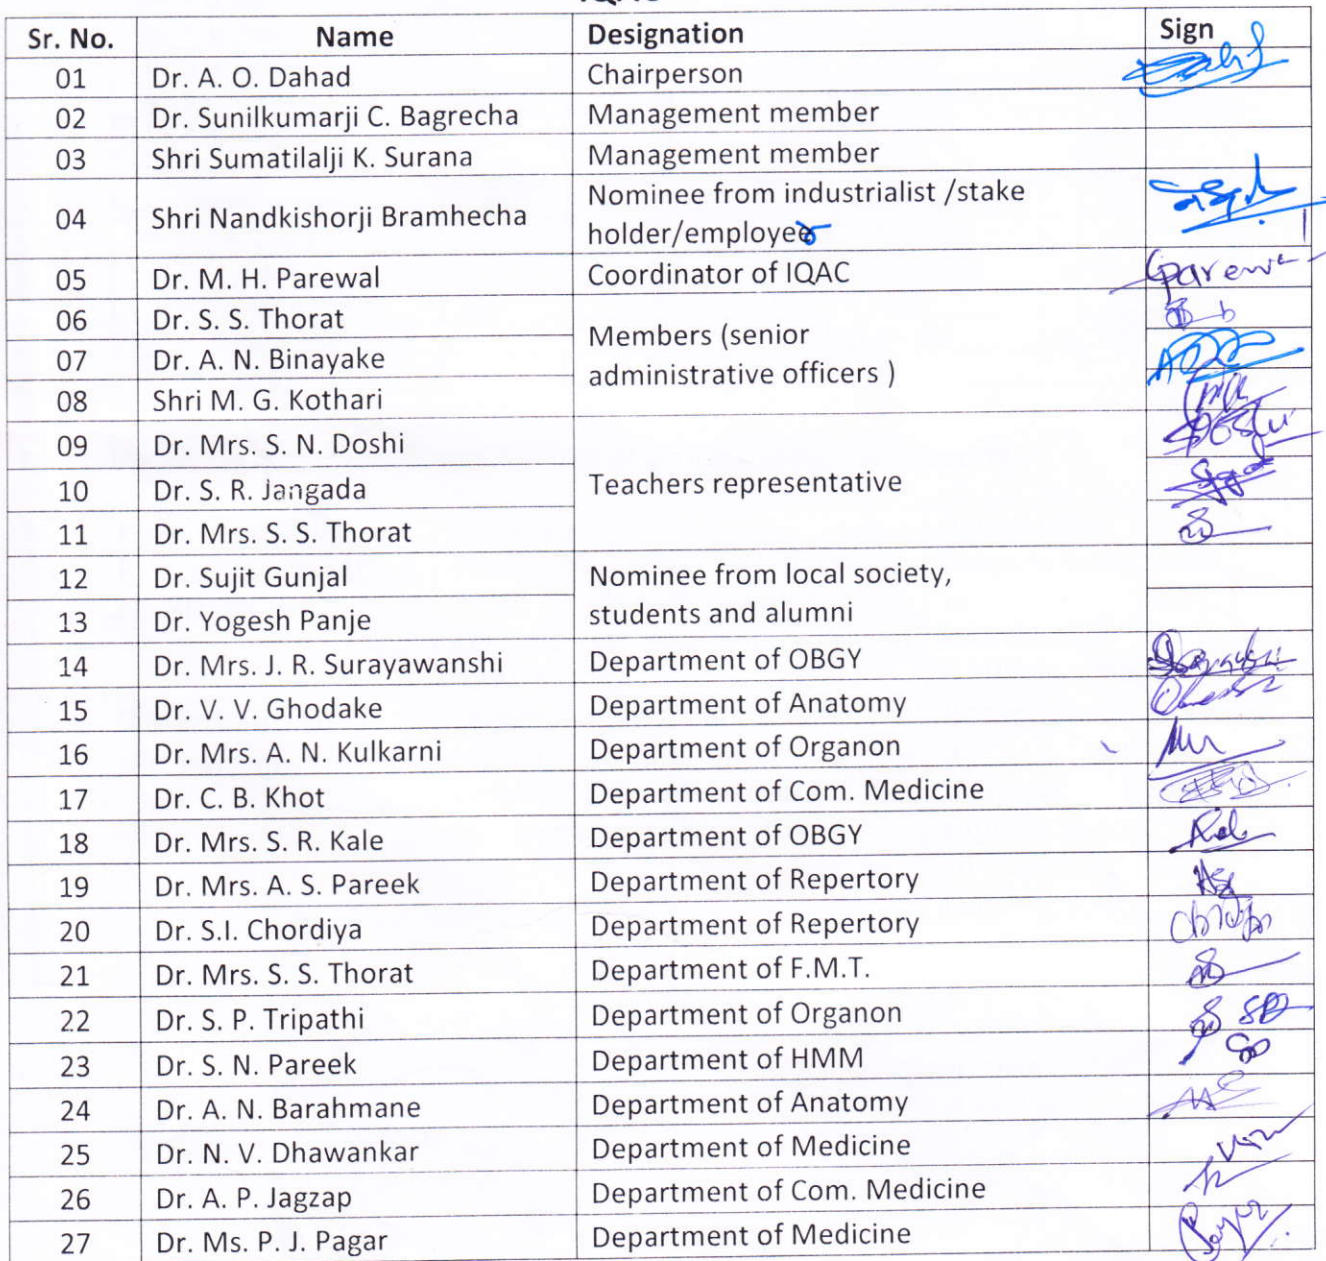 Sr. No. Name Designation Sign
01 Dr. A. O. Dahad Chairperson
02 Dr. Sunilkumarji C. Bagrecha Management member
03 Shri Sumatilalji K. Surana Management member
04 Shri Nandkishorji Bramhecha Nominee from industrialist /stake
holder/employee
05 Dr. M. H. Parewal Coordinator of IQAC
06 Dr. S. S. Thorat Members (senior
07 Dr. A. N. Binayake administrative officers )
08 Shri M. G. Kothari
09 Dr. Mrs. S. N. Doshi
10 Dr. S. R. Jangada Teachers representative
11 Dr. Mrs. S. S. Thorat
12 Dr. Sujit Gunjal Nominee from local society,
13 Dr. Yogesh Panje students and alumni
14 Dr. Mrs. J. R. Surayawanshi Department of OBGY
15 Dr. V. V. Ghodake Department of Anatomy
16 Dr. Mrs. A. N. Kulkarni Department of Organon
17 Dr. C. B. Khot Department of Com. Medicine
18 Dr. Mrs. S. R. Kale Department of OBGY
19 Dr. Mrs. A. S. Pareek Department of Repertory
20 Dr. S.I. Chordiya Department of Repertory
21 Dr. Mrs. S. S. Thorat Department of F.M.T.
22 Dr. S. P. Tripathi Department of Organon
23 Dr. S. N. Pareek Department of HMM
24 Dr. A. N. Barahmane Department of Anatomy
25 Dr. N. V. Dhawankar Department of Medicine
26 Dr. A. P. Jagzap Department of Com. Medicine
27 Dr. Ms. P. J. Pagar Department of Medicine